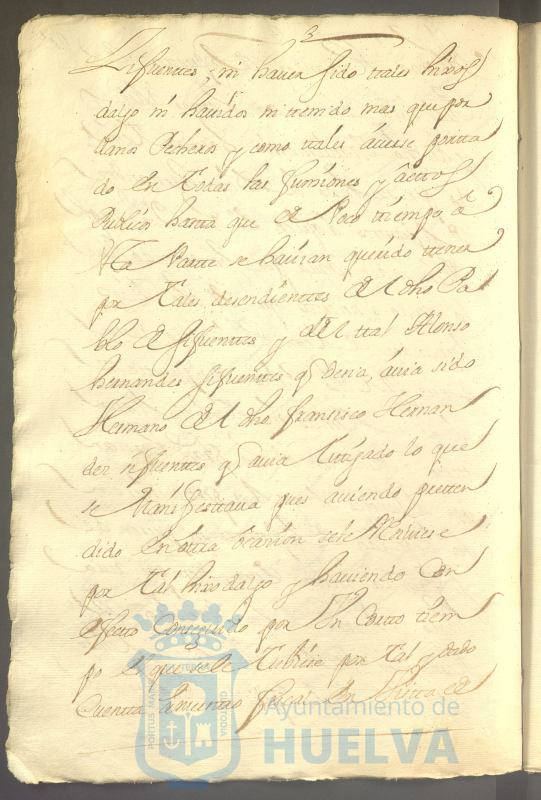 3
Sifuentes, ni haver sido tales hixos
dalgo ni havidos ni tenido mas que por
llanos Pecheros y como tales averse porta
do en todas las funsiones y actos
Publicos hasta que de Poco tiempo a
esta Parte se havian querido tener
por tales desendientes del dho Pa
blo de Sifuentes y del tal Alonso
hernandes Sifuentes q desia, avia sido
Hermano del dho fransisco Hernan
des sifuentes q avia litigado lo que
se Manifestava pues aviendo preten
dido en otra ocasion se le Resiviese
por tal hixo dalgo y haviendo con
efecto Conseguido por un Corto tiem
po el que se le tubiese por tal y dado
Cuenta a nuestro fiscal en vista de
Ayuntamiento de
HUELVA